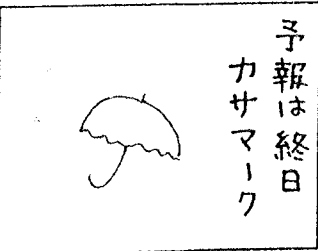 予報は終日
カサマーク